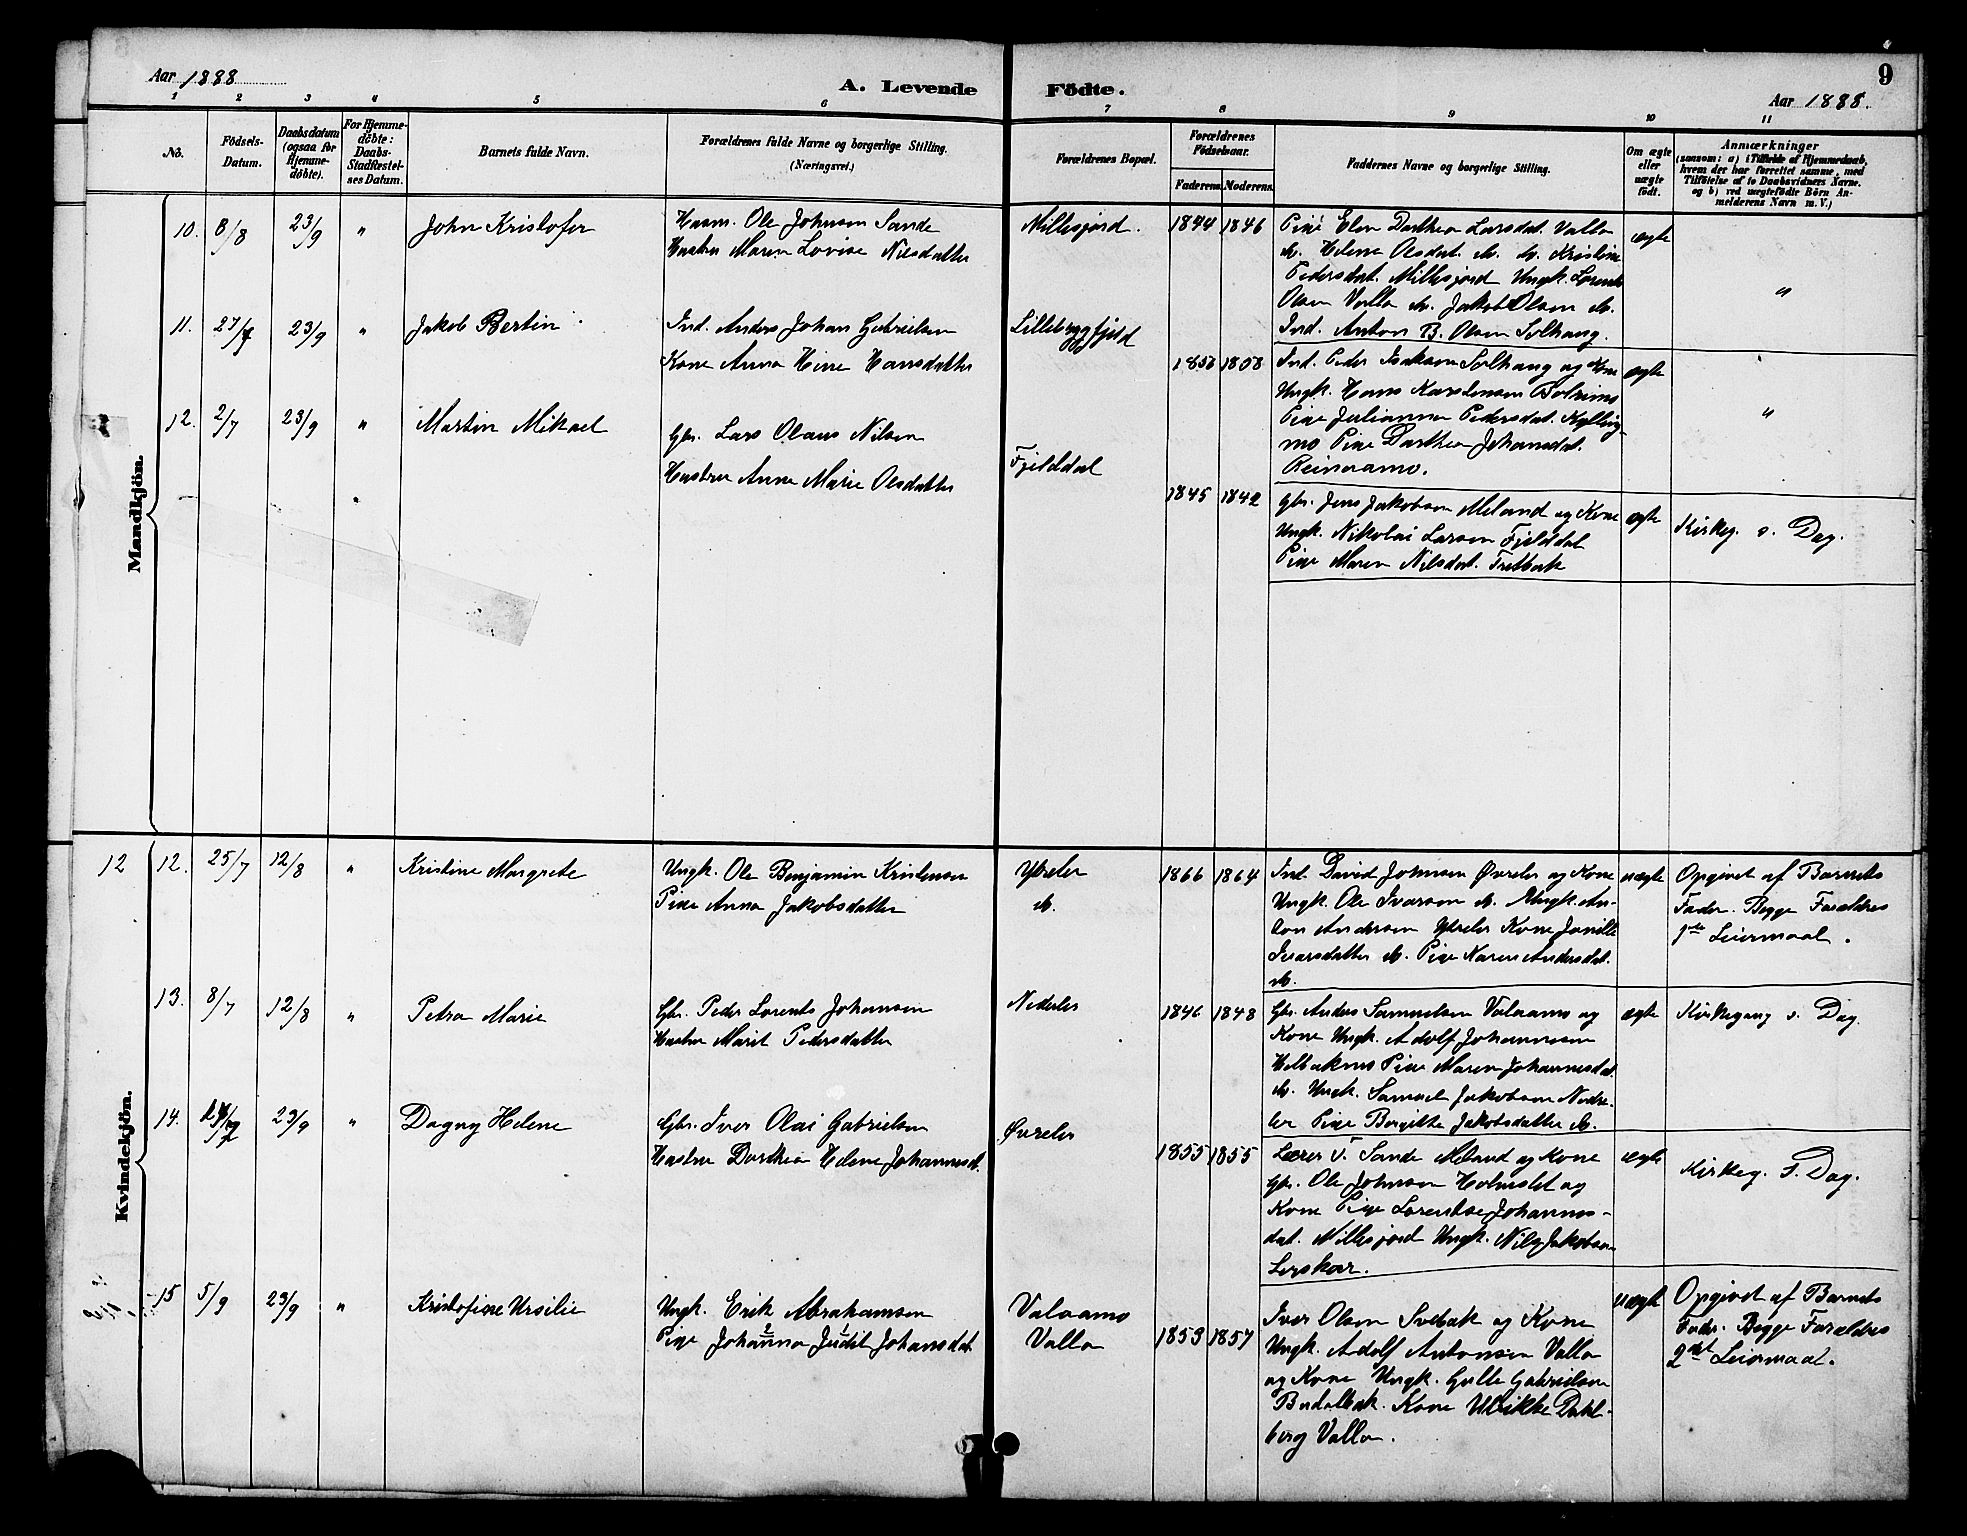 Aar 1888
A. Levende Födte.
9
Aar 1888.
1 2 3 4 5 6 7 8 9 10 11
No.
Födsels-Datum.
Daabsdatum (ogsaa for Hjemmedöbte).
For Hjemmedöbte: Daabs-Stadfæstelses Datum.
Barnets fulde Navn.
Forældrenes fulde Navne og borgerlige Stilling.
(Næringsvei.)
Forældrenes Bopæl.
Forældrenes Födselsaar.
Faderens. Moderens.
Faddernes Navne og borgerlige Stilling.
Om ægte eller uægte födt.
Anmærkninger
(saasom: a) i Tilfælde af Hjemmedaab, hvem der har forrettet samme, med Tilföielse af to Daabsvidners Navne. og b) ved uægtefödte Börn Anmelderens Navn m. V.)
Mandkjön.
10. 8/8 23/9 " John Kristofer
Husm. Ole Johnsen Sande
Hustru Maren Lovise Nilsdatter
Millesjord. 1844 1846
Pige Elen Dorthea Larsdat. Valla
do. Helene Olsdat. do. do. Kristine
Pedersdat. Millesjord Ungk. Lorents
Olsen Valla do. Jakob Olsen do.
Ind. Anton B. Olsen Solhaug.
ægte "
11. 23/9 " Jakob Bertin
Ind. Anders Johan Gabrielsen
Kone Anna Hansdatter
1858
Ind. Peder Isaksen Solhaug og Kone
Ungk. Hans Karstensen
Pige Julianna Pedersdat. Kylling-
mo Pige Dorthea Johansdat.
Reinaamo.
ægte "
12. 2/7 23/9 " Martin Mikael
Gbr. Lars Olaus Nilsen
Hustru Anne Marie Olsdatter
Fjelddal 1845 1842
Gbr. Jens Jakobsen Meland og Kone
Ungk. Nikolai Larsen Fjelddal
Pige Maren Nilsdat.
ægte Kirkeg. s. Dag.
Kvindekjön.
12 12. 25/7 12/8 " Kristine Margrete
Ungk. Ole Benjamin Kristensen
Pige Anna Jakobsdatter
Ytreler
do.
1866 1864
Ind. David Johnsen Øvreler og Kone
Ungk. Ole Ivarsen do. Ungk. An-
ton Andersen Ytreler Kone
Ivarsdatter do. Pige Karen Andersdat.
do.
uægte
Opgivet af Barnets
Fader. Begge Forældres
1ste Leiermaal.
13. 8/7 12/8 " Petra Marie
Gbr. Peder Lorents Johansen
Hustru Marit Pedersdatter
Nederler 1846 1848
Gbr. Anders Samuelsen Valaamo og
Kone Ungk. Adolf Johannesen
Pige Maren Johannesdat.
do. Ungk. Samuel Jakobsen Nedre-
ler Pige Bergitte Jakobsdatter do.
ægte Kirkegang s. Dag.
14. 23/9 " Dagny Helene
Gbr. Iver Olai Gabrielsen
Hustru Dorthea Helene Johannesd.
Øvreler 1855 1855
Lærer Sande Meland og Kone
Gbr. Ole Johnsen Holmslet og
Kone Pige Lorentse Johannes-
dat. Millesjord Ungk. Nils Jakobsen
Lerskar.
ægte Kirkeg. s. Dag.
15 5/9 23/9 " Kristofine Ursilie
Ungk. Erik Abrahamsen
Pige Johanna Judit Johansdat
Valaamo
Valla
1853 1857
Iver Olsen Svebak og Kone
Ungk. Adolf Antonsen Valla
og Kone Ungk. Gulle Gabrielsen
Kone Ulrikke Dahl-
berg Valla.
uægte
Opgivet af Barnets
Fader. Begge Forældres
2det Leiermaal.